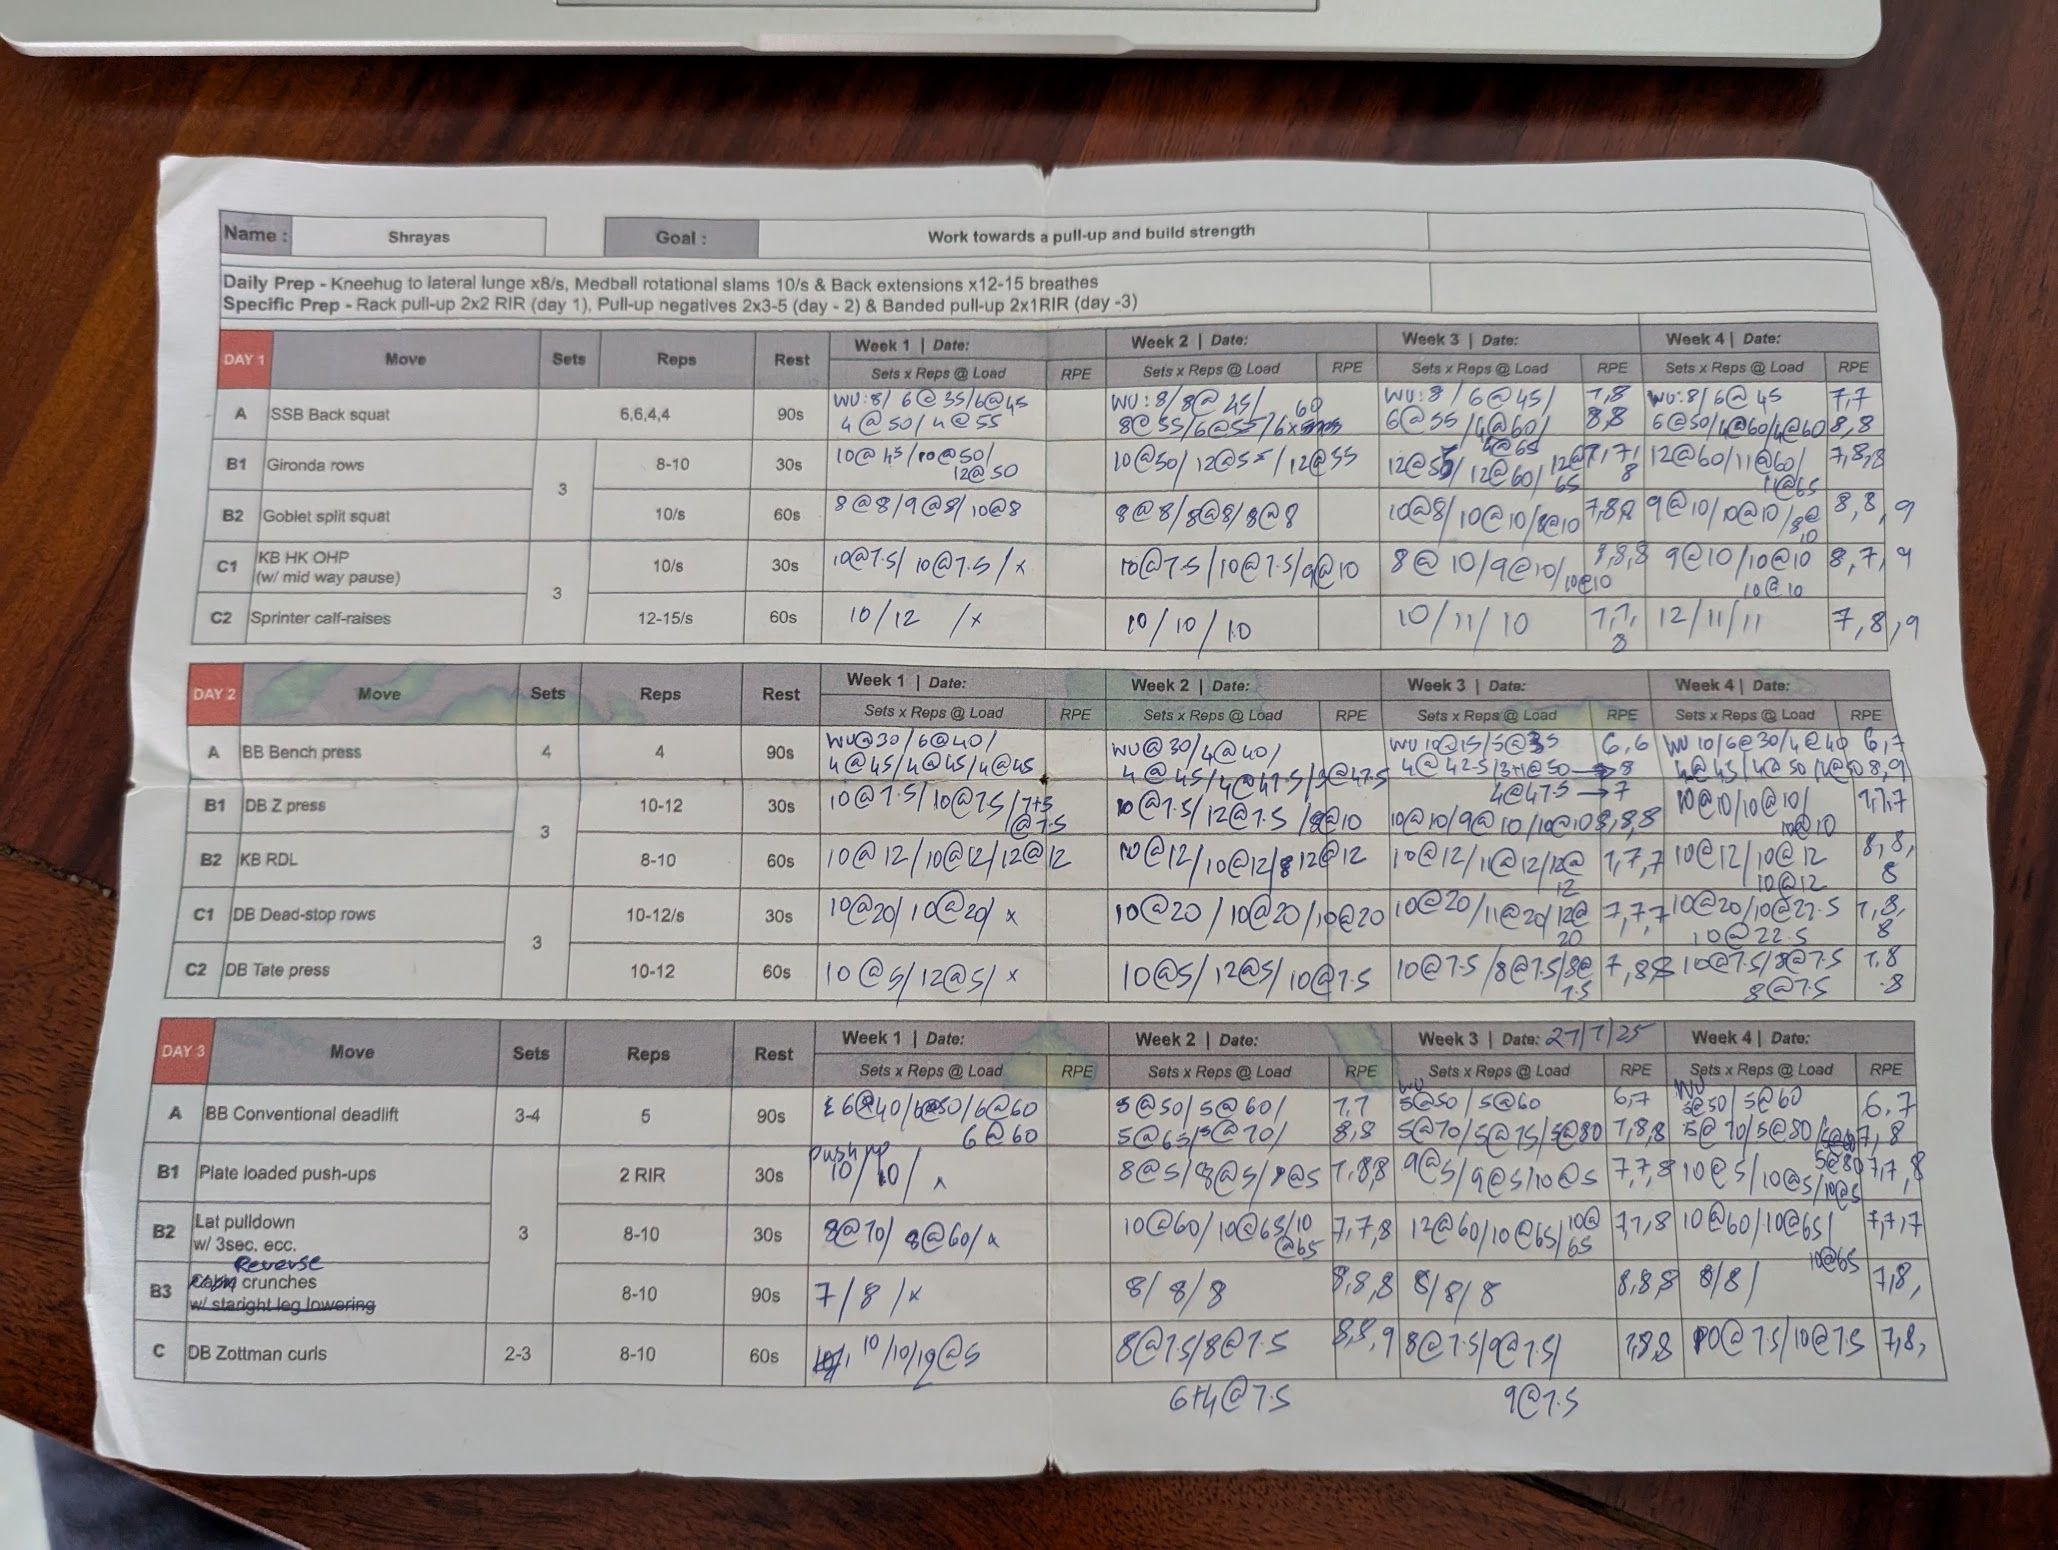 Name : Shrayas Goal : Work towards a pull-up and build strength
Daily Prep - Kneehug to lateral lunge x8/s, Medball rotational slams 10/s & Back extensions x12-15 breathes
Specific Prep - Rack pull-up 2x2 RIR (day 1), Pull-up negatives 2x3-5 (day - 2) & Banded pull-up 2x1RIR (day -3)
DAY 1 Move Sets Reps Rest Week 1 | Date: Week 2 | Date: Week 3 | Date: Week 4 | Date:
Sets x Reps @ Load RPE Sets x Reps @ Load RPE Sets x Reps @ Load RPE Sets x Reps @ Load RPE
A SSB Back squat 6,6,4,4 90s
WU:8/ 6@35/6@45 WU:8/8@45/ WU:8/6@45/ 7,8 WU:8/6@45 7,7
4@50/4@55 8@55/6@55/ 60 6@55/4@60/ 4@65 8,8 6@50/4@60/4@60 8,8
B1 Gironda rows 3 8-10 30s 10@45/10@50/ 12@50 10@50/12@55/12@55 12@55/12@60/12@ 65 7,7, 8 12@60/11@60/ 11@65 7,8,8
B2 Goblet split squat 10/s 60s 8@8/9@8/10@8 8@8/8@8/8@8 10@8/10@10/8@10 7,8,8 9@10/10@10/8@ 10 8,8,9
C1 KB HK OHP
(w/ mid way pause) 3 10/s 30s 10@7.5/10@7.5/x 10@7.5/10@7.5/9@10 8@10/9@10/10@10 8,8,8 9@10/10@10 10@10 8,7,9
C2 Sprinter calf-raises 12-15/s 60s 10/12 /x 10/10/10 10/11/10 7,7, 8 12/11/11 7,8,9
DAY 2 Move Sets Reps Rest Week 1 | Date: Week 2 | Date: Week 3 | Date: Week 4 | Date:
Sets x Reps @ Load RPE Sets x Reps @ Load RPE Sets x Reps @ Load RPE Sets x Reps @ Load RPE
A BB Bench press 4 4 90s
WU@30/6@40/ WU@30/4@40/ WU 10@15/5@35 6,6 WU 10/6@30/4@40 6,7
4@45/4@45/4@45 4@45/4@47.5/3@47.5 4@42.5/3+1@50→8 4@45/4@50/4@50 8,9
4@47.5→7
B1 DB Z press 3 10-12 30s 10@7.5/10@7.5/7+3 @7.5 10@7.5/12@7.5/8@10 10@10/9@10/10@10 8,8,8 10@10/10@10/ 10@10 7,7,7
B2 KB RDL 8-10 60s 10@12/10@12/12@12 10@12/10@12/12@12 10@12/11@12/12@ 12 7,7,7 10@12/10@12 10@12 8,8, 8
C1 DB Dead-stop rows 3 10-12/s 30s 10@20/10@20/x 10@20/10@20/10@20 10@20/11@20/12@ 20 7,7,7 10@20/10@22.5 10@22.5 7,8, 8
C2 DB Tate press 10-12 60s 10@5/12@5/x 10@5/12@5/10@7.5 10@7.5/8@7.5/8@ 7.5 7,8,8 10@7.5/8@7.5 8@7.5 7,8 8
DAY 3 Move Sets Reps Rest Week 1 | Date: Week 2 | Date: Week 3 | Date: 27/7/25 Week 4 | Date:
Sets x Reps @ Load RPE Sets x Reps @ Load RPE Sets x Reps @ Load RPE Sets x Reps @ Load RPE
WU WU
A BB Conventional deadlift 3-4 5 90s
6@40/6@50/6@60 5@50/5@60/ 7,7 5@50/5@60 6,7 5@50/5@60 6,7
6@60 5@65/5@70/ 8,8 5@70/5@75/5@80 7,8,8 5@70/5@80/ 5@80 7,8
B1 Plate loaded push-ups 3 2 RIR 30s push up 10/10/x 8@5/8@5/8@5 7,8,8 9@5/9@5/10@5 7,7,8 10@5/10@5/10@5 7,7,8
B2 Lat pulldown
w/ 3sec. ecc. 8-10 30s 8@70/8@60/x 10@60/10@65/10 @65 7,7,8 12@60/10@65/10@ 65 7,7,8 10@60/10@65/ 10@65 7,7,7
Reverse
B3 crunches
w/ staright leg lowering 8-10 90s 7/8/x 8/8/8 8,8,8 8/8/8 8,8,8 8/8/ 7,8,
C DB Zottman curls 2-3 8-10 60s 10/10/10@5 8@7.5/8@7.5 8,8,9 8@7.5/9@7.5/ 7,8,8 10@7.5/10@7.5 7,8,
6+4@7.5 9@7.5